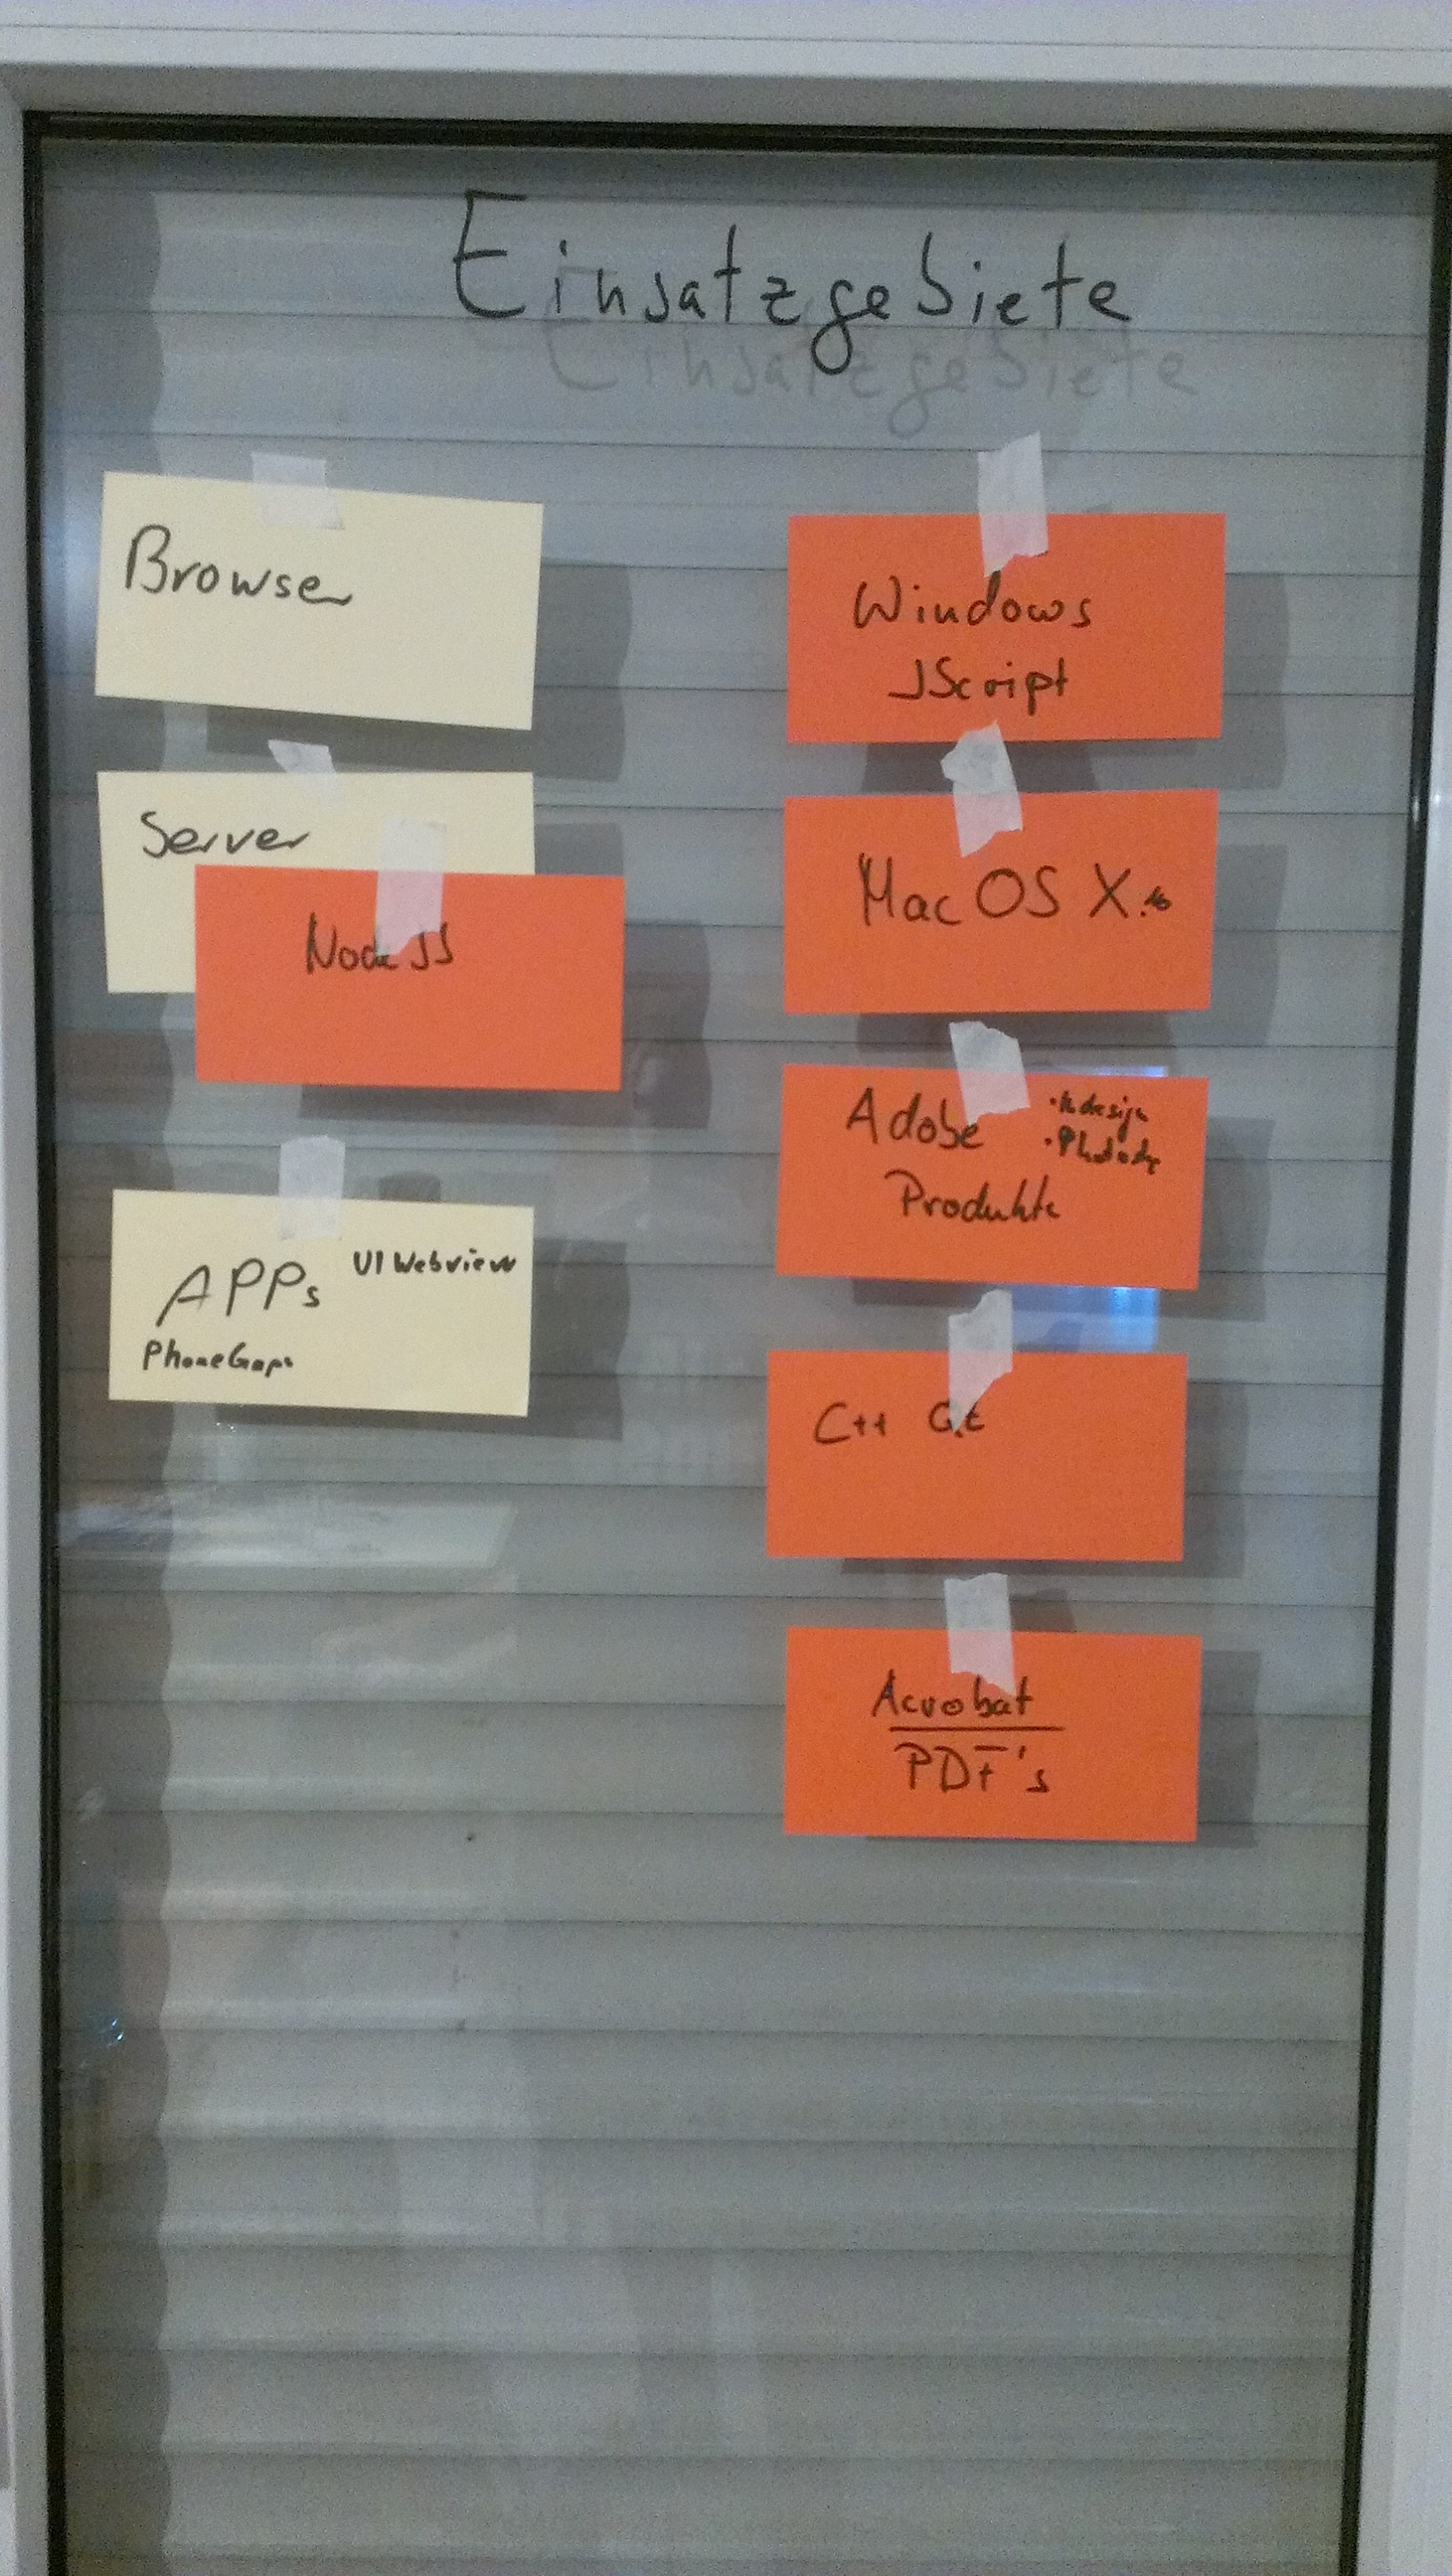 Einsatzgebiete
Browser
Server
NodeJS
APPs
UI Webview
PhoneGap
Windows
JScript
Mac OS X
Adobe
Produkte
• Indesign
C++ Qt
Acrobat
PDF's